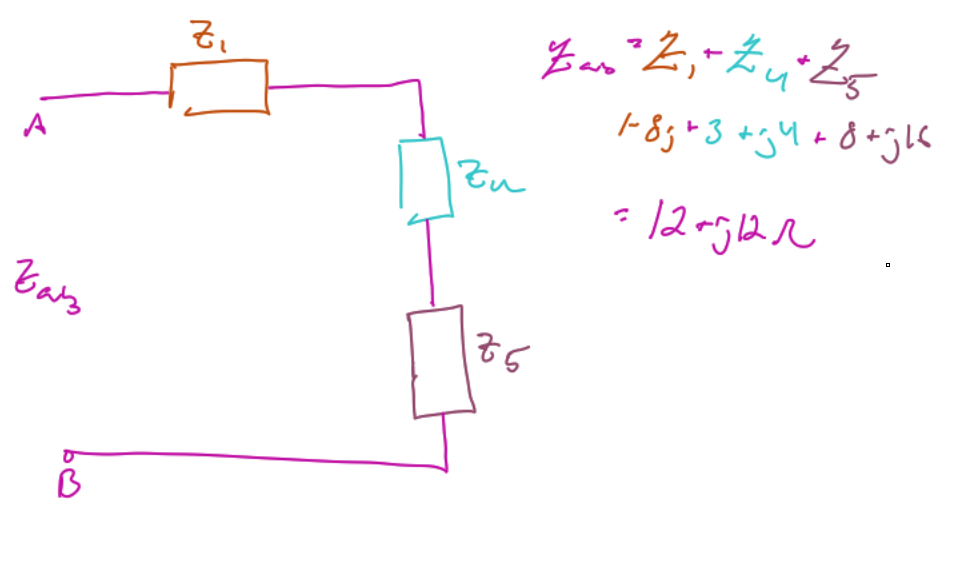 Z₁
A
Z₄
Z_ab
Z₅
B
Z_ab = Z₁ + Z₄ + Z₅
1-8j + 3 + j4 + 8 + j16
= 12 + j12 Ω